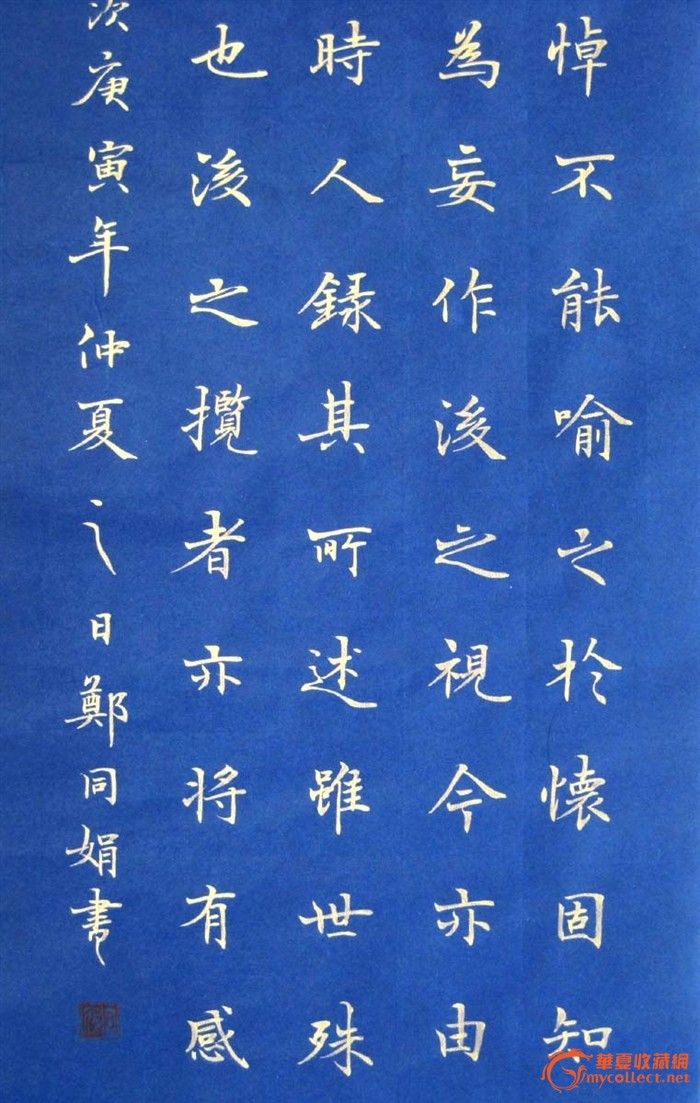 悼不能喻之於懷固知
為妄作後之視今亦由
時人錄其所述雖世殊
也後之攬者亦将有感
次庚寅年仲夏之日鄭同娟書
華夏收藏網
mycollect.net